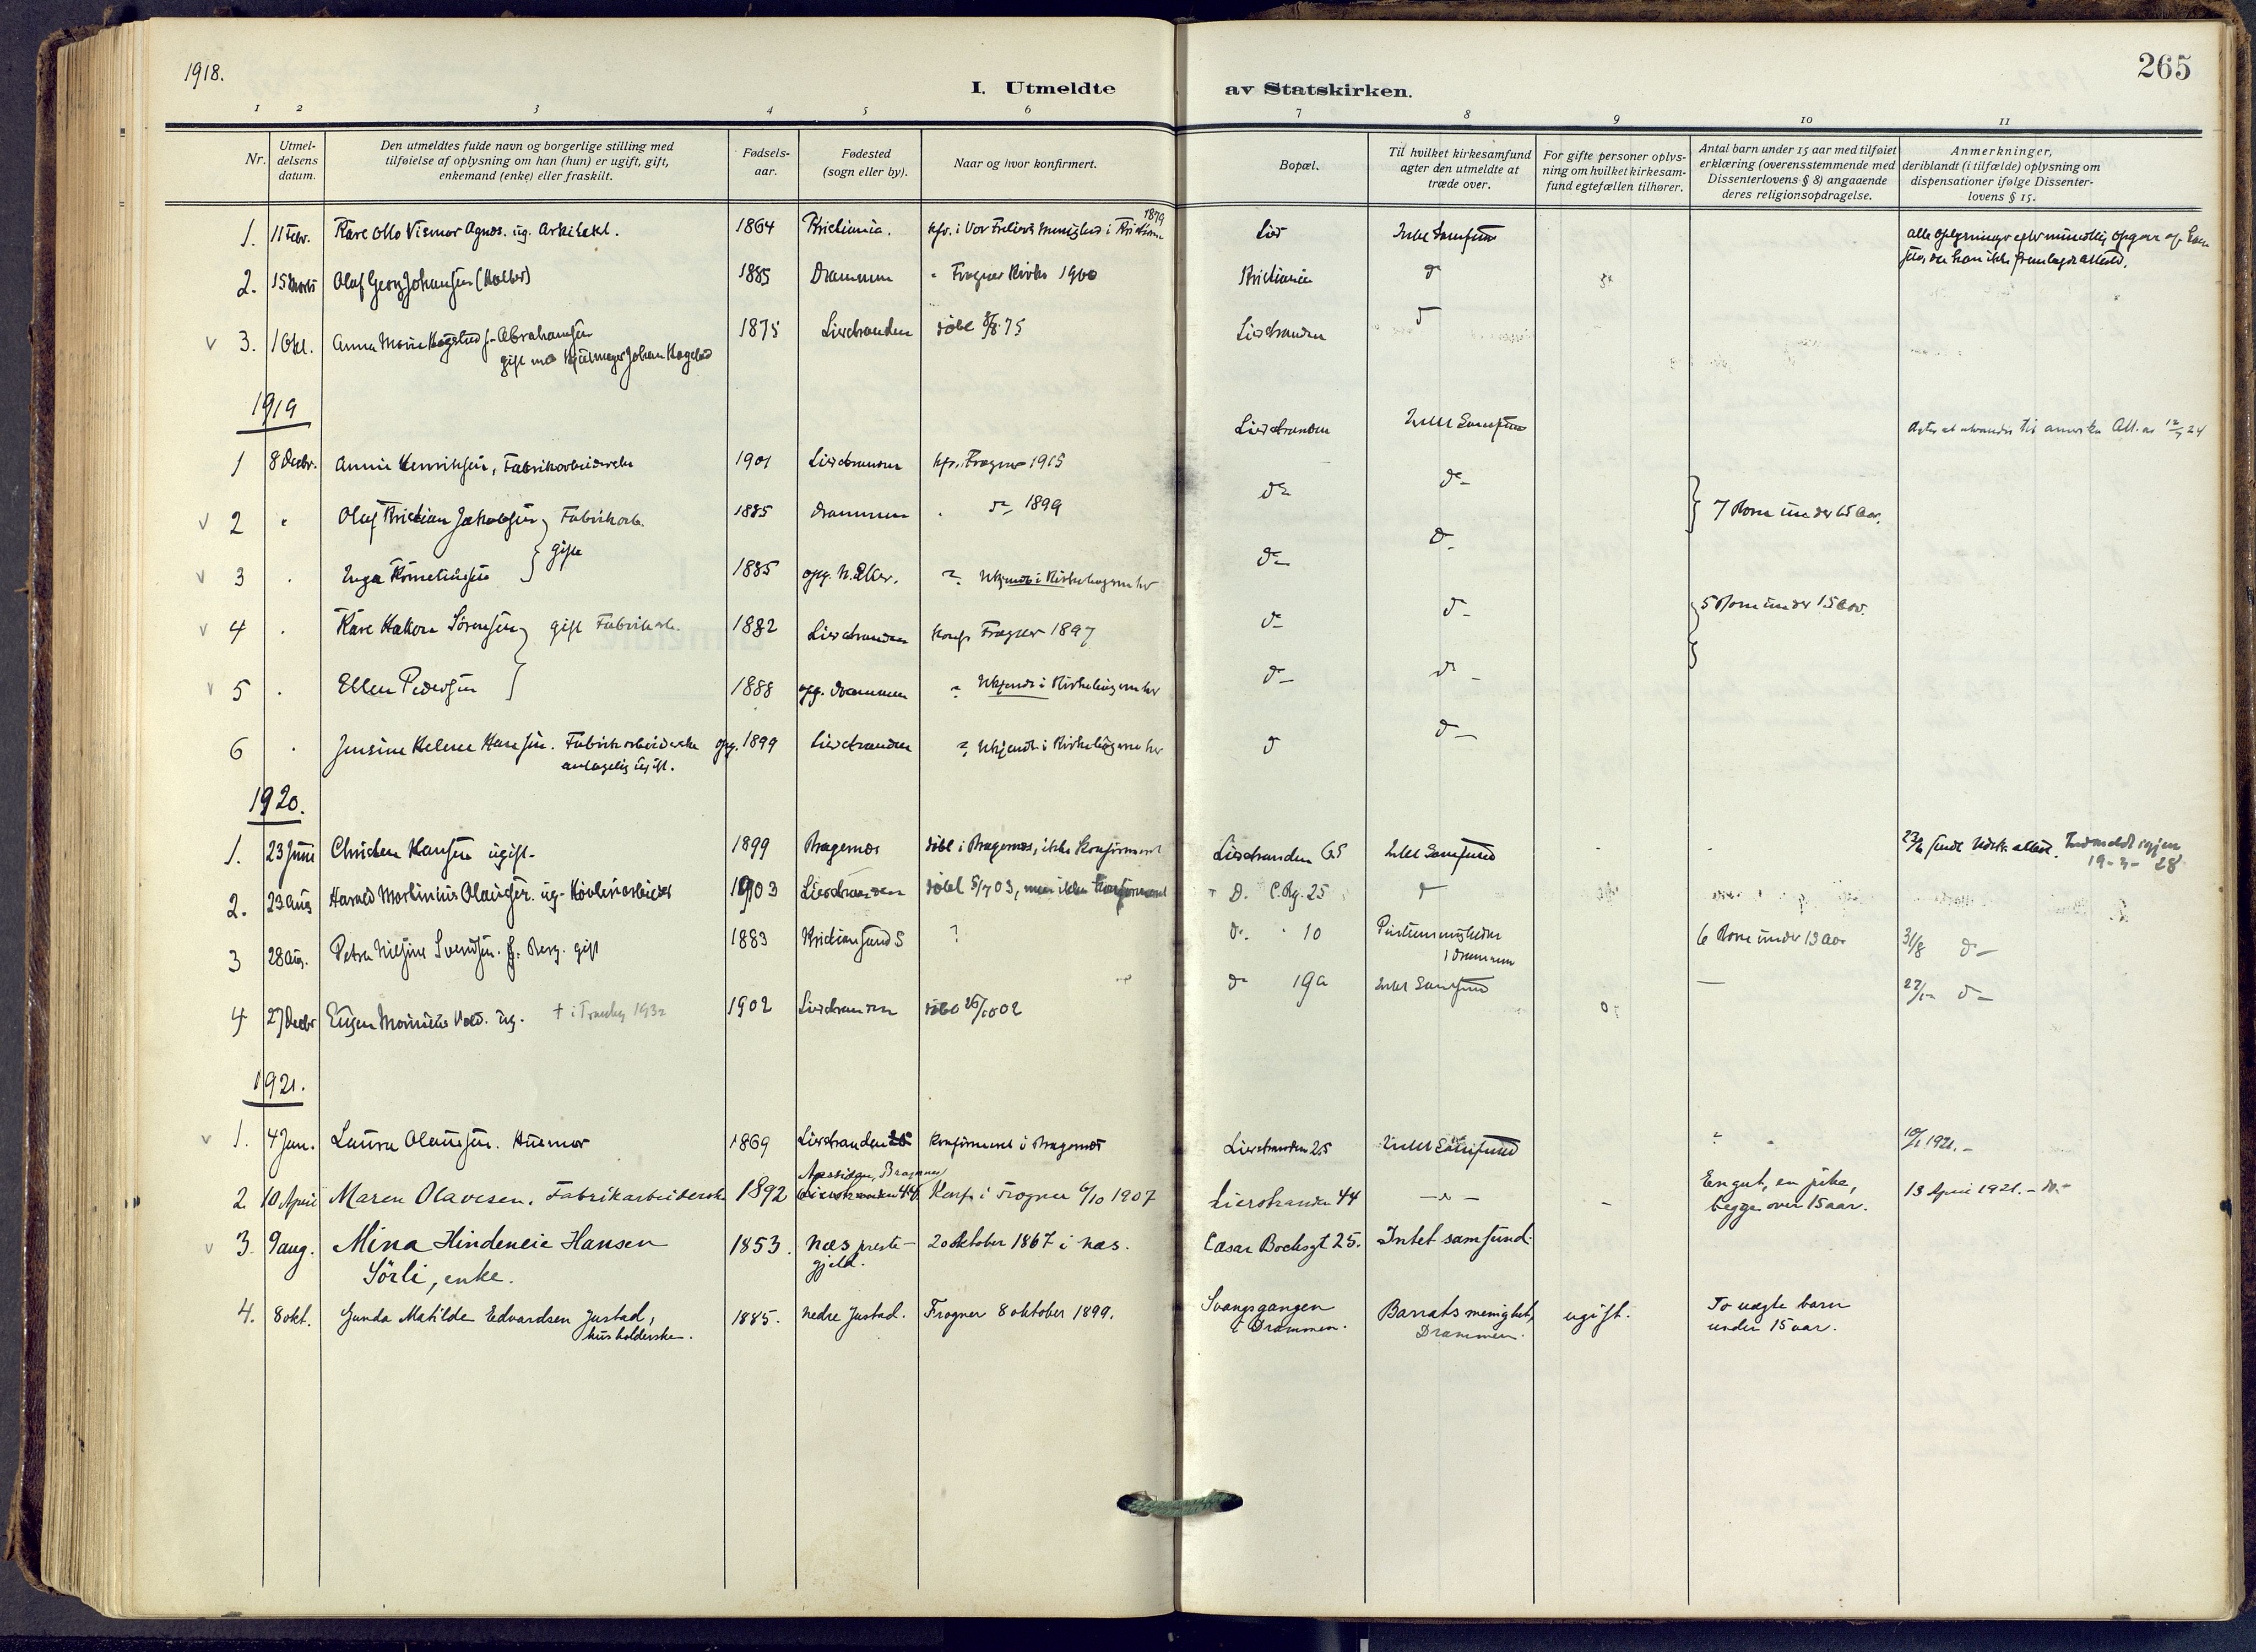 1918.
I. Utmeldte av Statskirken.
265
1 2 3 4 5 6 7 8 9 10 11
Nr.
Utmeldelsens datum.
Den utmeldtes fulde navn og borgerlige stilling med
tilføielse af oplysning om han (hun) er ugift, gift,
enkemand (enke) eller fraskilt.
Fødselsaar.
Fødested
(sogn eller by).
Naar og hvor konfirmert.
Bopæl.
Til hvilket kirkesamfund
agter den utmeldte at
træde over.
For gifte personer oplys-
ning om hvilket kirkesam-
fund egtefællen tilhører.
Antal barn under 15 aar med tilføiet
erklæring (overensstemmende med
Dissenterlovens § 8) angaaende
deres religionsopdragelse.
Anmerkninger,
deriblandt (i tilfælde) oplysning om
dispensationer ifølge Dissenter-
lovens § 15.
1. 11 Febr. Otto Agnes. ug. Arkitekt. 1864 Kristiania. kfr. i Vor Frelsers Menighed i 1879 Lier Intet Samfund
2. 15 Olaf Georg Johansen 1885 Drammen " Frogner Kirke 1900 Kristiania do
v 3. 1 Okt. Anna Marie f. Abrahamsen 1875 Lierstranden døbt 8/8 75 Lierstranden do
gift med Johan
1919
1 8 Decbr. Annie Henriksen, Fabrikarbeiderske 1901 Lierstranden kfr. Frogner 1915 Lierstranden Intet Samfund
v 2 " Olaf Kristian Jakobsen Fabrikarb. 1885 Drammen " do 1899 do do 7 Børn under 15 Aar.
gifte
v 3 " Inga 1885 opg. N. Eker. ? Ukjendt i Kirkebøgerne her do do
v 4 " Kåre Håkon Sørensen gift Fabrikarb. 1882 Lierstranden Konf. Frogner 1897 do do 5 Børn under 15 Aar.
v 5 " Ellen Pedersen 1888 opg. Drammen ? Ukjendt i Kirkebøgerne her do do
6 " Jensine Helene Hansen. Fabrikarbeiderske opg. 1899 Lierstranden ? Ukjendt i Kirkebøgerne her do do
antagelig ugift.
1920.
1. 23 Juni Christen Hansen ugift. 1899 Bragernes døbt i Bragernes, ikke Konfirmeret Lierstranden 65 Intet Samfund 23/6 sendt Udtr. attest. Indmeldt igjen
19-3-28
2. 23 Aug Harald Martinius Olaussen. ug. 1903 Lierstranden døbt 5/7 03, men ikke Konfirmeret do. 25 do
3 28 Aug. Petra Nilsine Svendsen. f. Berg. gift 1883 Kristiansund S ? do. " 10 6 Børn under 13 Aar 31/8 do
i Drammen
4 27 Decbr Eugen ug. † i Tranby 1932 1902 Lierstranden døbt 26/10 02 do 19a Intet Samfund — do
1921.
v 1. 4 Jan. Laura Olaussen. Husmor 1869 Lierstranden Konfirmeret i Bragernes Lierstranden 25 Intet Samfund 1921.-
2. 10 April Maren Olavesen. Fabrikarbeiderske 1892 Bragernes Lierstranden 44 Konf. i Frogner 6/10 1907 Lierstranden 44 — " — - En gut, en pike,
begge over 15 aar. 13 April 1921. - do.-
v 3. 9 aug. Mina Hindeneie Hansen 1853. Næs preste-
gjeld. 20 Oktober 1867 i Næs. Cæsar Bochsgt 25. Intet samfund.
Sörli, enke.
4. 8 okt. Gunda Matilde Edvardsen Justad, 1885. Nedre Justad. Frogner 8 oktober 1899. Svangsgangen
i Drammen. Barrats menighet,
Drammen. ugift. To uægte barn
under 15 aar.
husholderske.